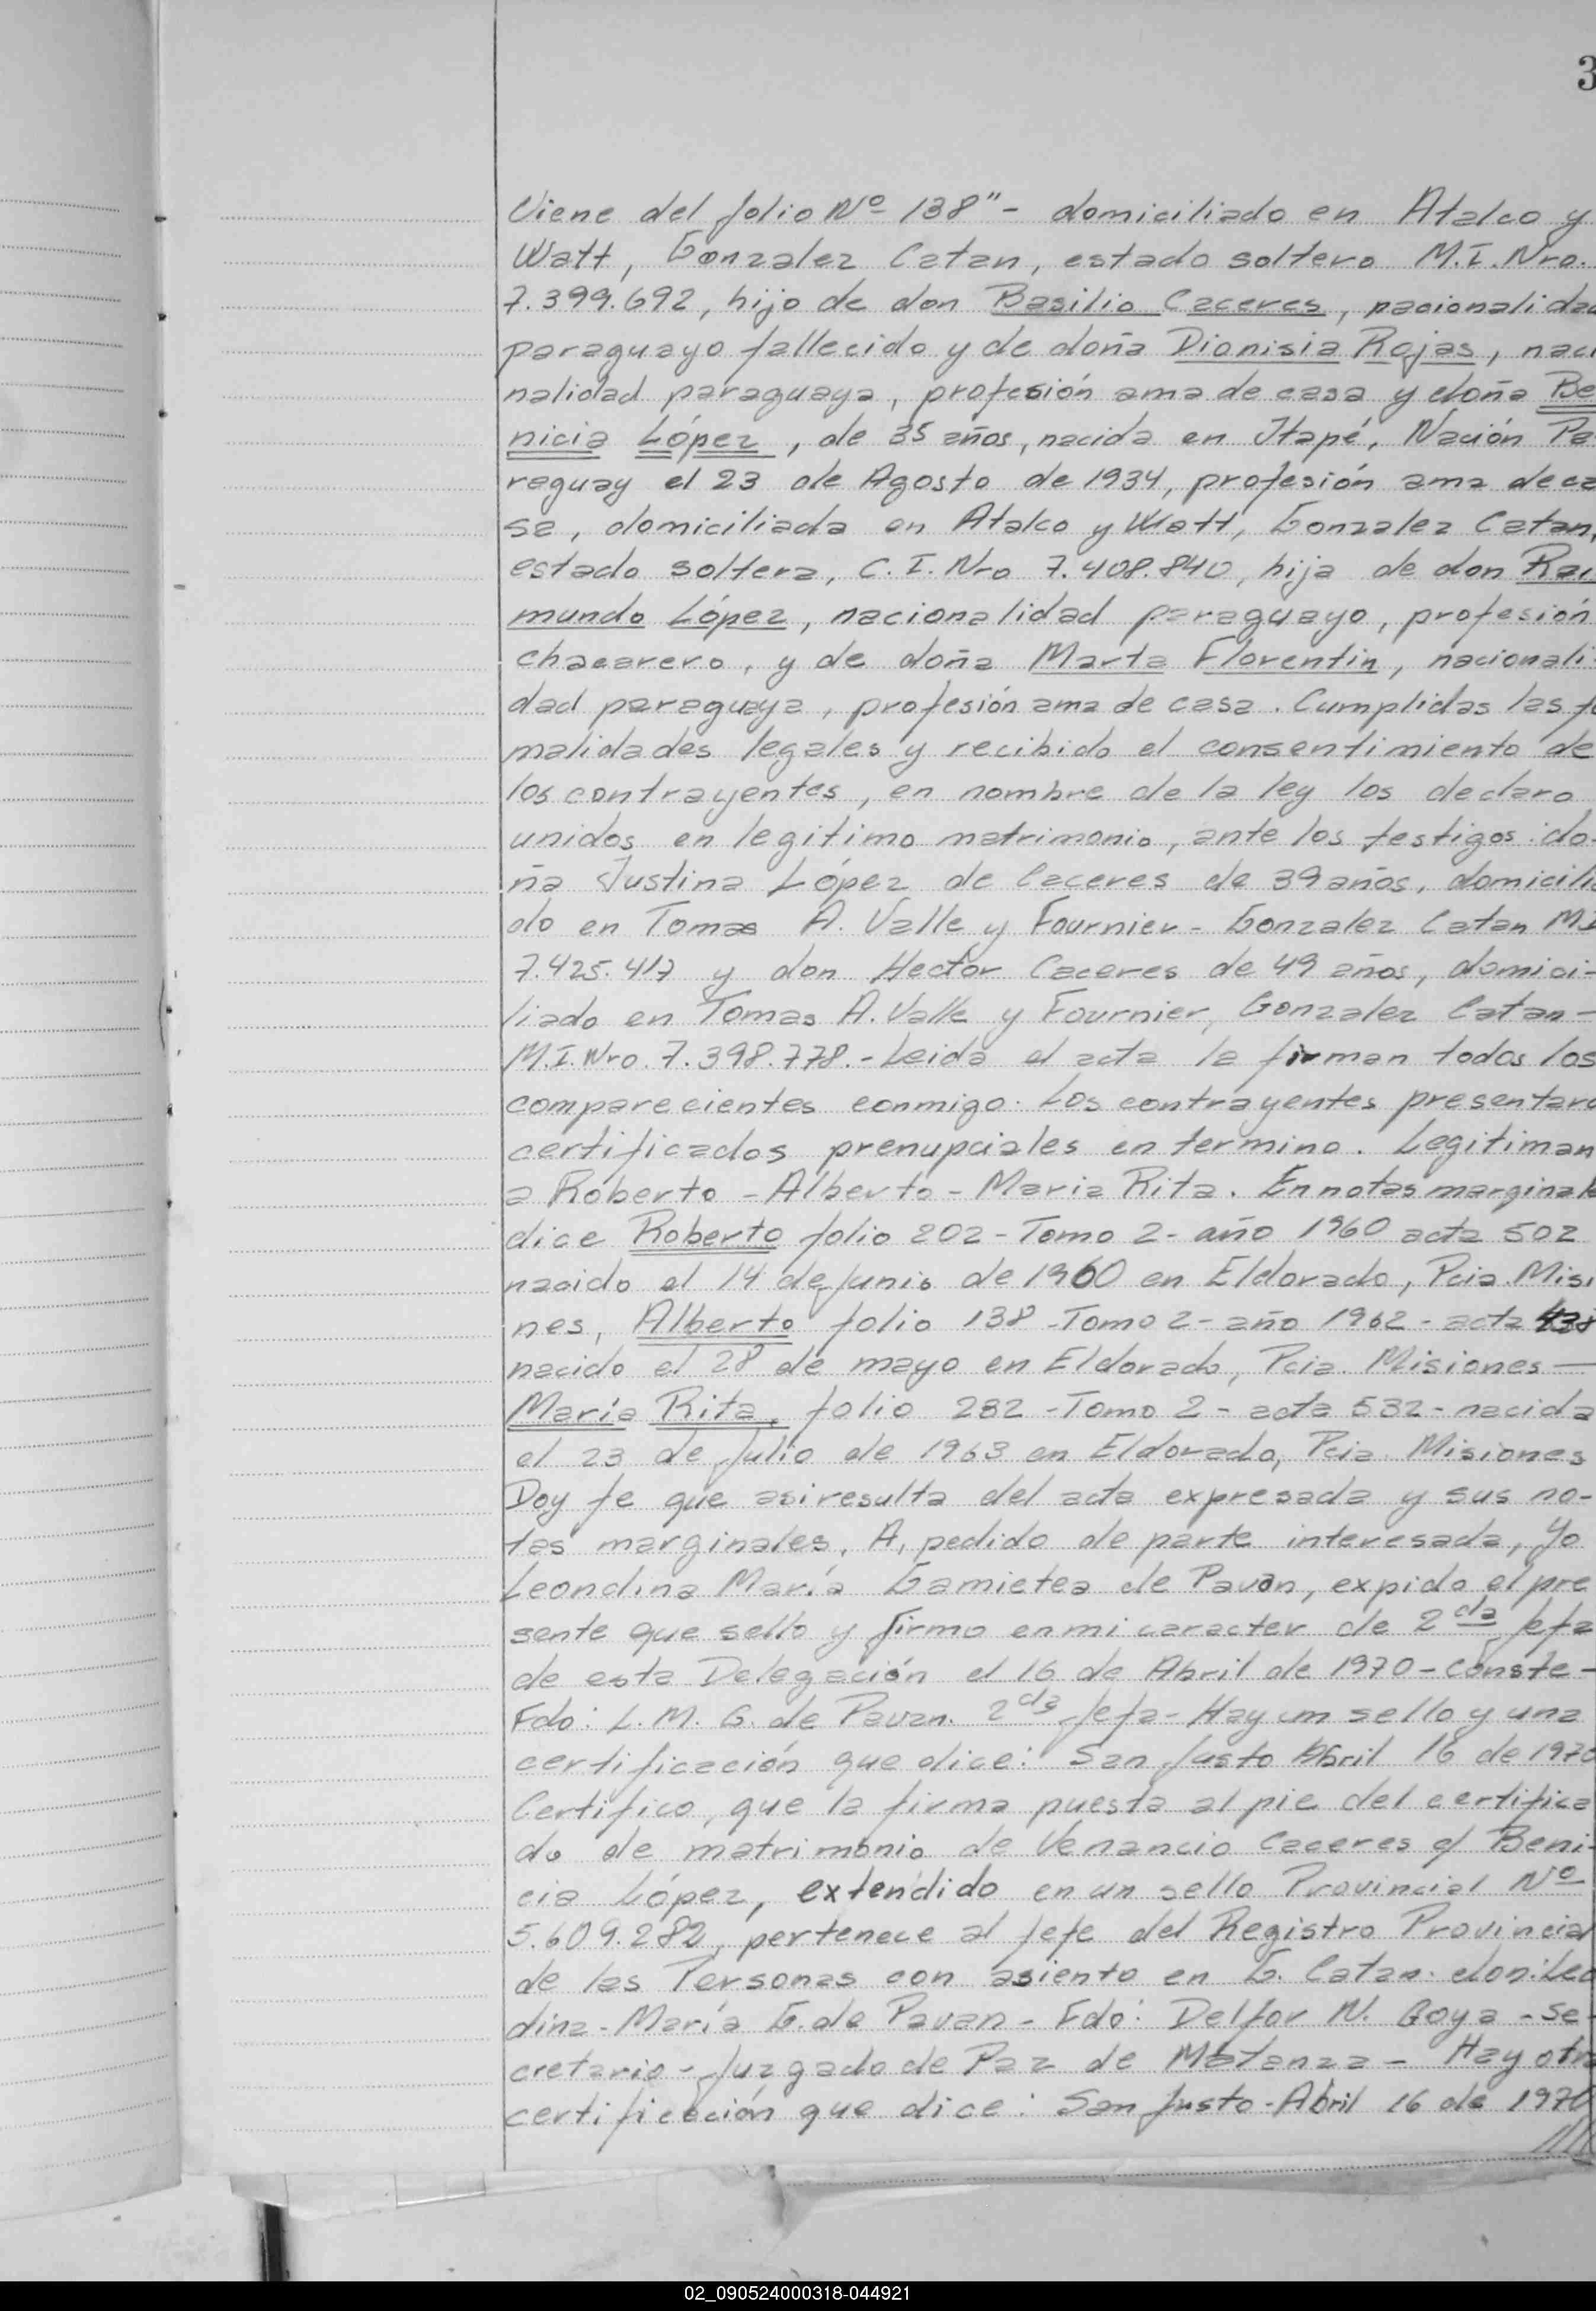 3
Viene del folio Nº 138"- domiciliado en Atalco y
Watt, Gonzalez Catan, estado soltero M.I. Nro.
7.399.692, hijo de don Basilio Caceres, nacionalidad
paraguayo fallecido y de doña Dionisia Rojas, naci
nalidad paraguaya, profesión ama de casa y doña Be
nicia López, de 35 años, nacida en Itapé, Nación Pa
raguay el 23 de Agosto de 1934, profesión ama de ca
sa, domiciliada en Atalco y Watt, Gonzalez Catan,
estado soltera, C.I. Nro 7.408.840, hija de don Rai
mundo López, nacionalidad paraguayo, profesión
chacarero, y de doña Marta Florentin, nacionali
dad paraguaya, profesión ama de casa. Cumplidas las fo
malidades legales y recibido el consentimiento de
los contrayentes, en nombre de la ley los declaro
unidos en legitimo matrimonio, ante los testigos: do-
ña Justina López de Caceres de 39 años, domicilia
do en Tomas A. Valle y Fournier - Gonzalez Catan MI
7.425.417 y don Hector Caceres de 49 años, domici-
liado en Tomas A. Valle y Fournier, Gonzalez Catan -
M.I. Nro. 7.398.778.- Leida el acta la firman todos los
comparecientes conmigo. Los contrayentes presentaro
certificados prenupciales en termino. Legitiman
a Roberto - Alberto - Maria Rita. En notas marginale
dice Roberto folio 202 - Tomo 2 - año 1960 acta 502
nacido el 14 de Junio de 1960 en Eldorado, Pcia. Misi
nes, Alberto folio 138 - Tomo 2 - año 1962 - acta 438
nacido el 28 de mayo en Eldorado, Pcia. Misiones —
María Rita, folio 282 - Tomo 2 - acta 532 - nacida
el 23 de Julio de 1963 en Eldorado, Pcia. Misiones
Doy fe que asi resulta del acta expresada y sus no-
tas marginales. A, pedido de parte interesada, yo
Leondina María Gamietea de Pavan, expido el pre
sente que sello y firmo en mi caracter de 2da Jefa
de esta Delegación el 16 de Abril de 1970 - Conste -
Fdo: L. M. G. de Pavan. 2da Jefa - Hay un sello y una
certificación que dice: San Justo Abril 16 de 1970
Certifico, que la firma puesta al pie del certifica
do de matrimonio de Venancio Caceres y Beni-
cia López, extendido en un sello Provincial Nº
5.609.282, pertenece al Jefe del Registro Provincial
de las Personas con asiento en G. Catan. don: Leo
dina - María G. de Pavan - Fdo: Delfor N. Goya - Se-
cretario - Juzgado de Paz de Matanza - Hay otr
certificación que dice: San Justo - Abril 16 de 1970
02_090524000318-044921